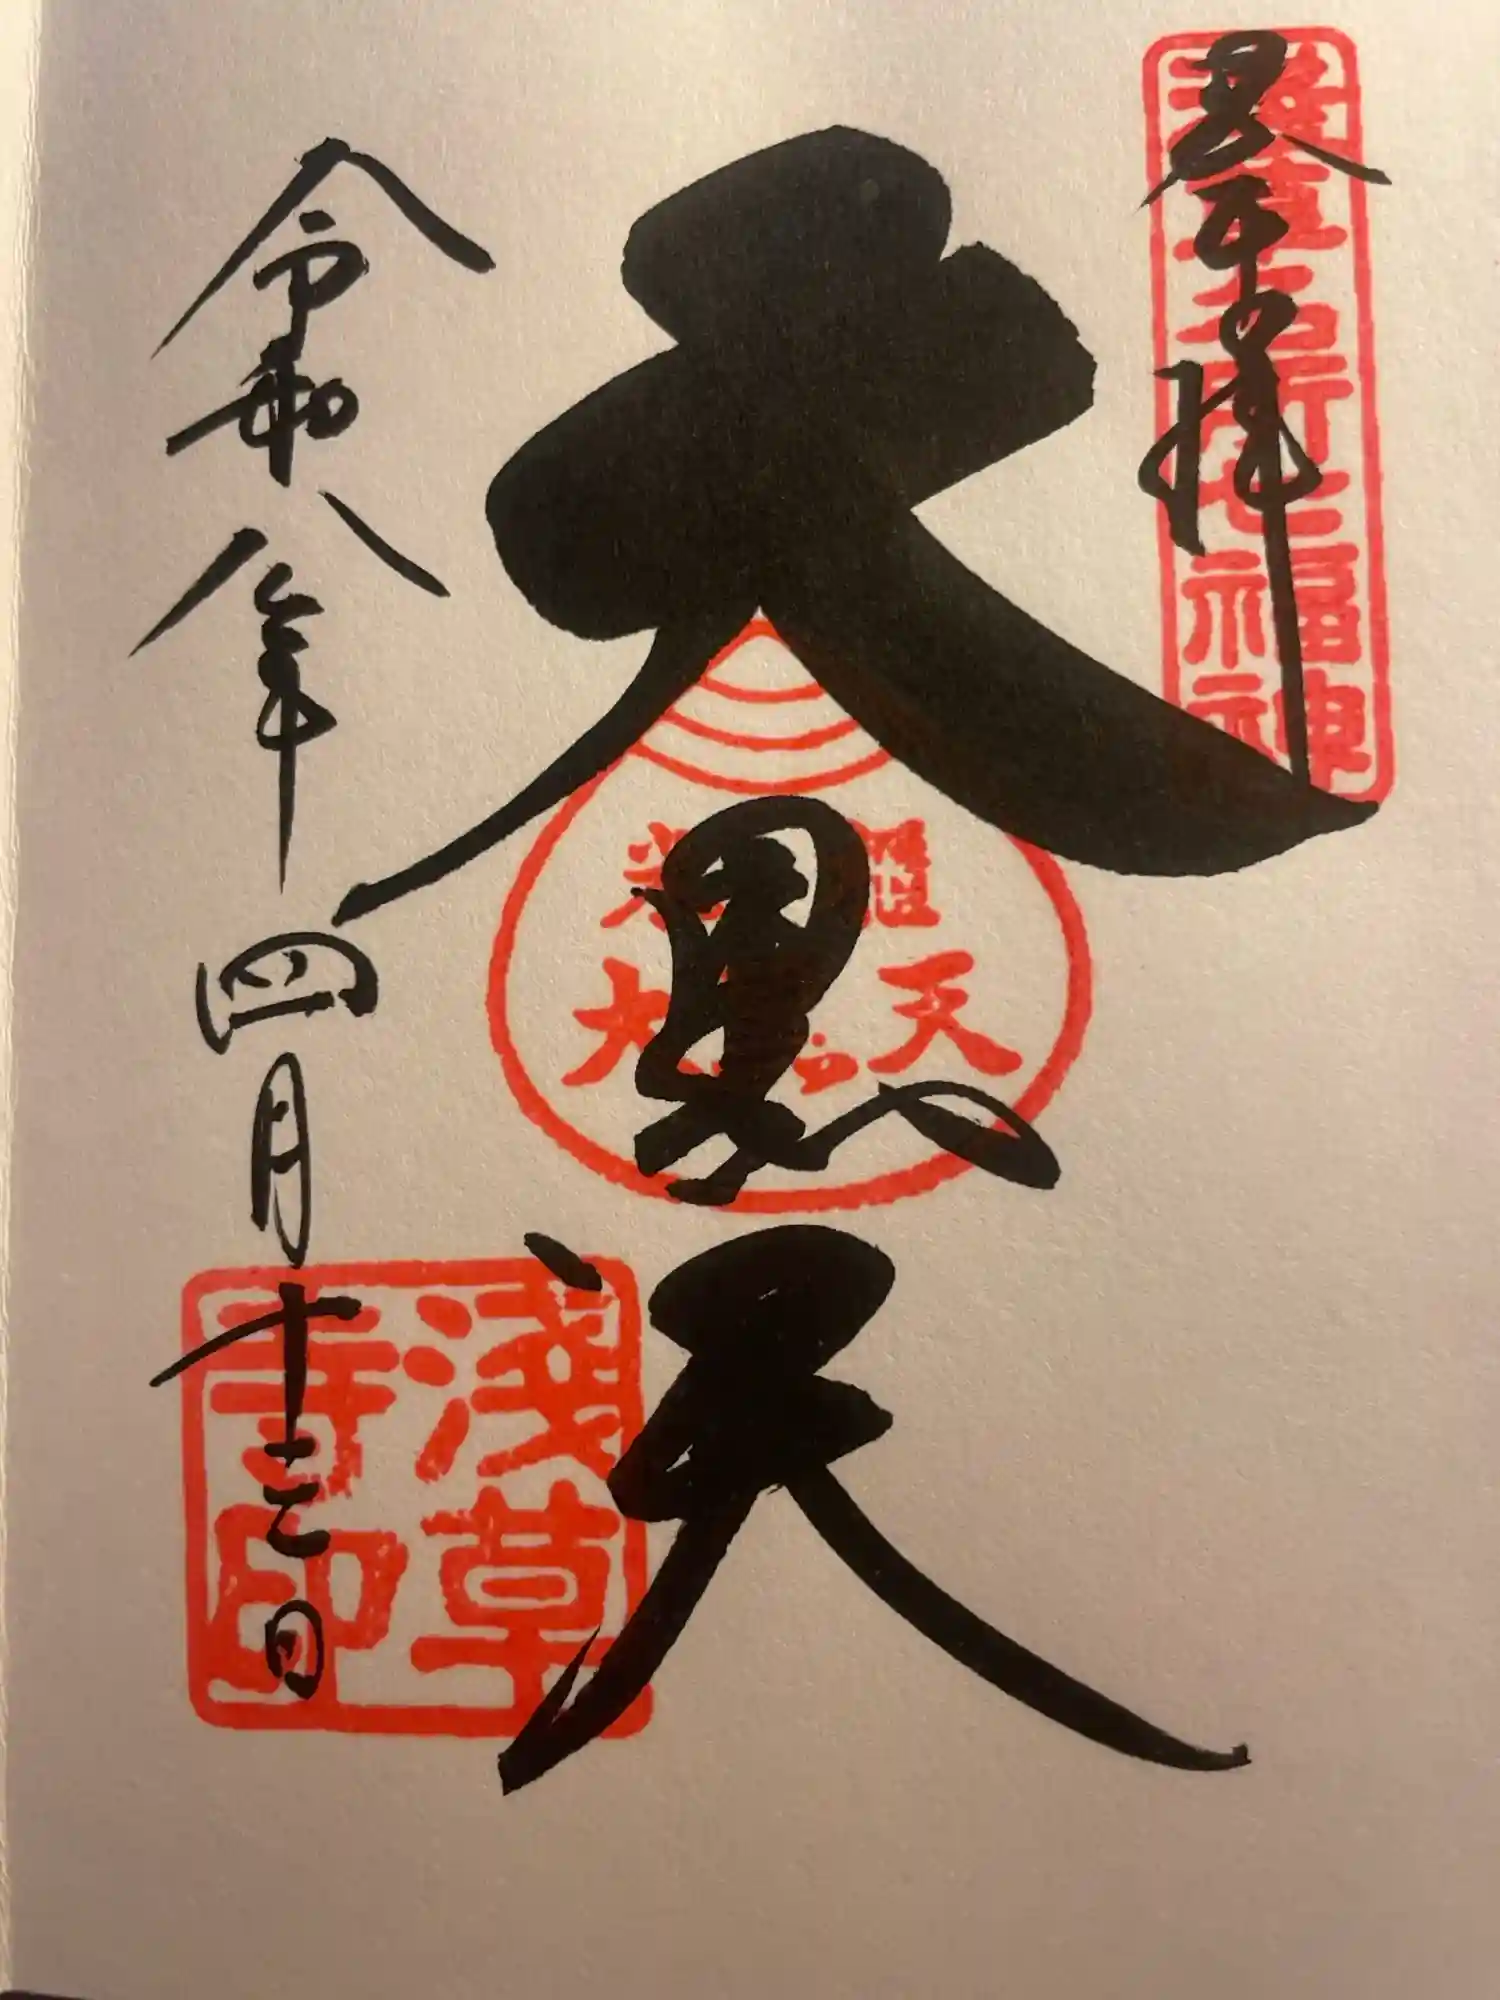 奉拝
淺草名所七福神
大黒天
米櫃
大黒天
令和八年四月十三日
淺草
寺印